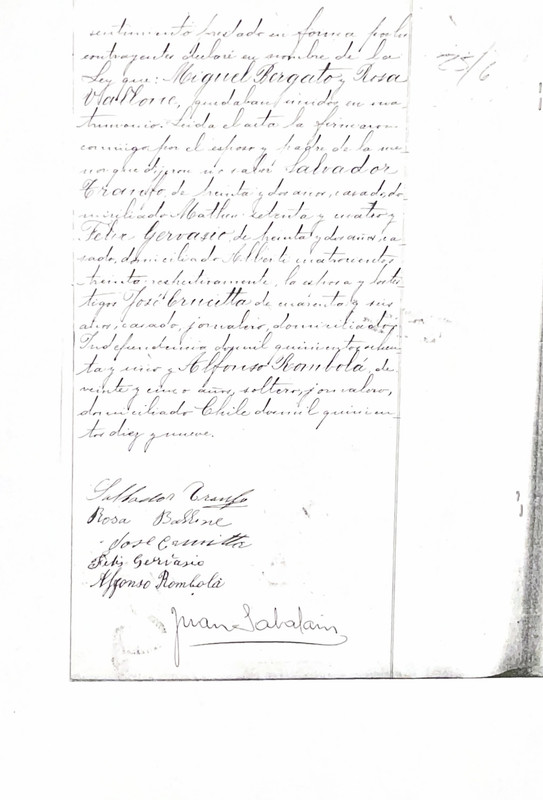 sentimiento prestado en forma por los
contrayentes declaré en nombre de la
Ley que: Miguel Porgato y Rosa
Vallone, quedaban unidos en ma
trimonio. Leida el acta la firmaron
conmigo por el esposo y padre de la me
nor que dijeron no saber Salvador
Tranfo, de treinta y dos años, casado, do
miciliado Matheu setenta y cuatro y
Felix Gervasio, de treinta y dos años, ca
sado, domiciliado Alberti cuatrocientos
treinta respectivamente, la esposa y los tes
tigos José Crucitta de cuarenta y seis
años, casado, jornalero, domiciliado
Independencia dos mil quinientos ochen
ta y uno y Alfonso Rombolá, de
veinte y cinco años, soltero, jornalero,
domiciliado Chile dos mil quinien
tos diez y nueve.
Salbador Tranfo
Rosa Ballone
José Crucitta
Felix Gervasio
Alfonso Rombolá
Juan Sabalain